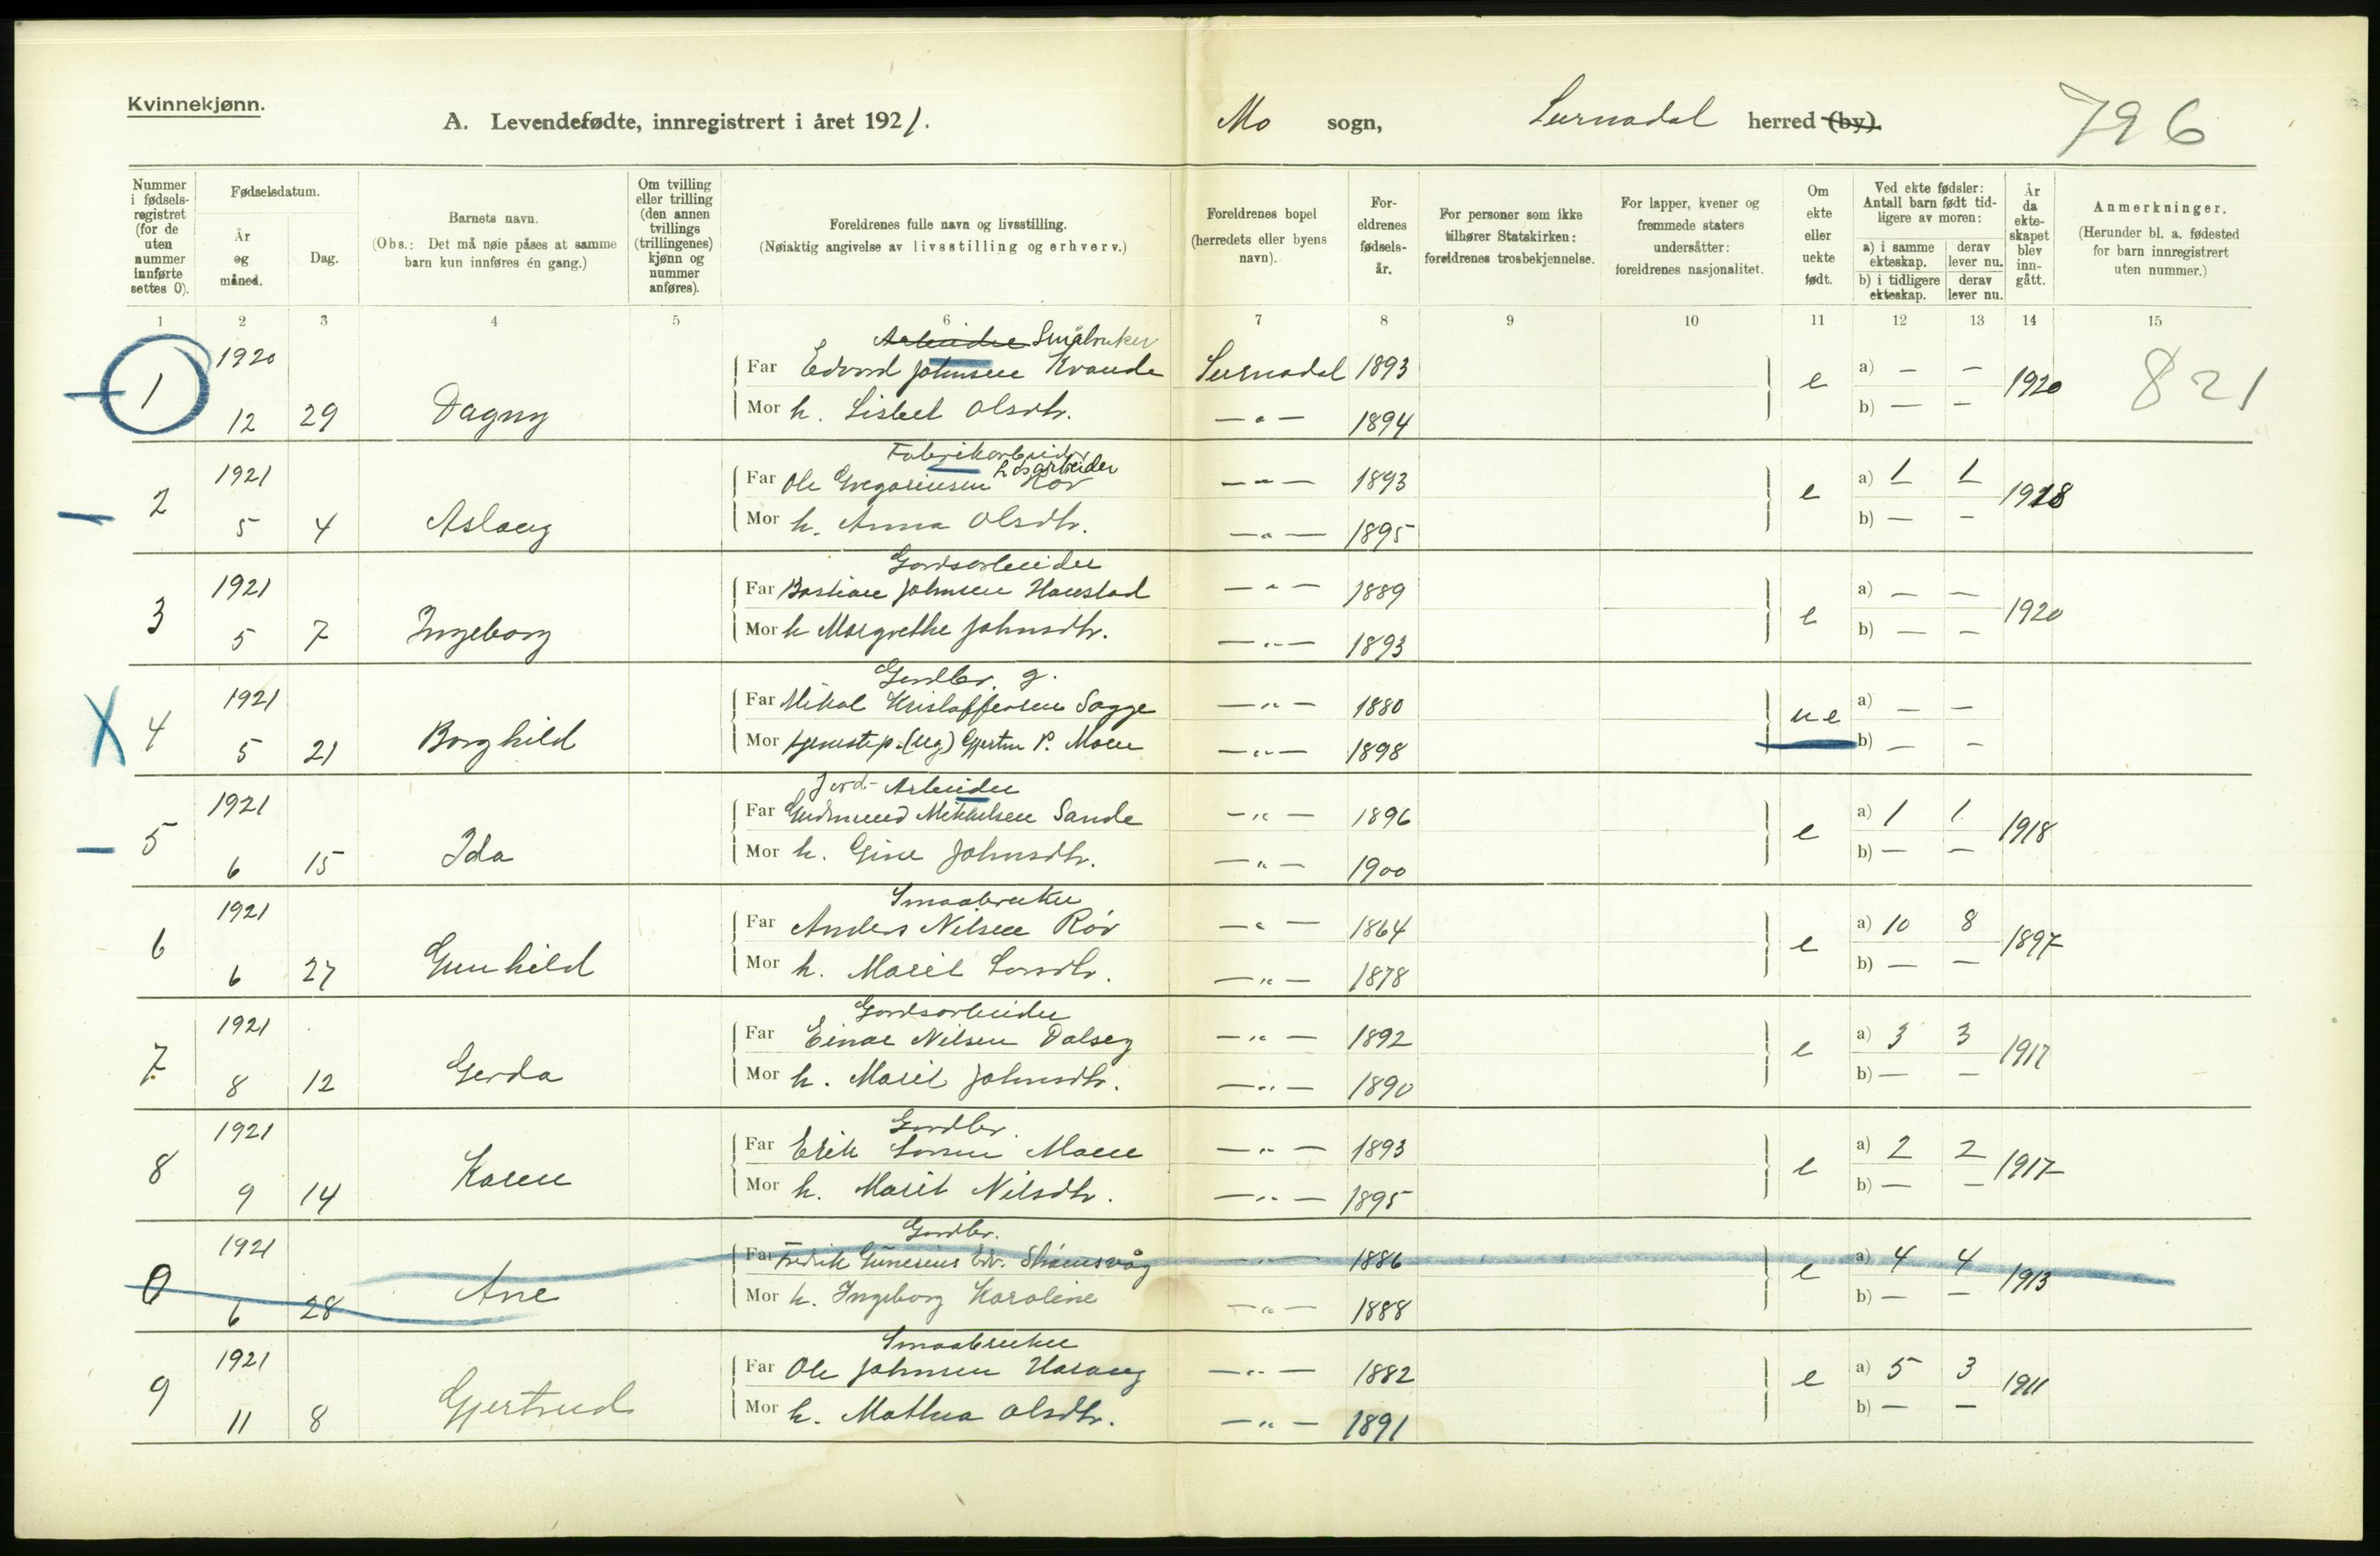 Kvinnekjønn.
A. Levendefødte, innregistrert i året 1921.
Mo sogn, Surnadal herred (by).
796
Nummer i fødsels-registret (for de uten nummer innførte settes 0).
Fødselsdatum.
År og måned.
Dag.
Barnets navn.
(Obs.: Det må nøie påses at samme barn kun innføres én gang.)
Om tvilling eller trilling (den annen tvillings (trillingenes) kjønn og nummer anføres).
Foreldrenes fulle navn og livsstilling.
(Nøiaktig angivelse av livsstilling og erhverv.)
Foreldrenes bopel (herredets eller byens navn).
For-eldrenes fødsels-år.
For personer som ikke tilhører Statskirken: foreldrenes trosbekjennelse.
For lapper, kvener og fremmede staters undersåtter: foreldrenes nasjonalitet.
Om ekte eller uekte født.
Ved ekte fødsler: Antall barn født tid-ligere av moren:
a) i samme ekteskap.
derav lever nu.
b) i tidligere ekteskap.
derav lever nu.
År da ekte-skapet blev inn-gått.
Anmerkninger.
(Herunder bl. a. fødested for barn innregistrert uten nummer.)
1 2 3 4 5 6 7 8 9 10 11 12 13 14 15
Arbeider Småbruker
1 1920 12 29 Dagny
Far Edvard Johnsen Kvande Surnadal 1893 e a) — — 1920 821
Mor h. Lisbet Olsdtr. — " — 1894 b) — —
Fabrikarbeider
Løsarbeider
2 1921 5 4 Aslaug
Far Ole Gregoriussen Røv — " — 1893 e a) 1 1 1918
Mor h. Anna Olsdtr. — " — 1895 b) — —
Gardsarbeider
3 1921 5 7 Ingeborg
Far Bastian Johnsen Haustad — " — 1889 e a) — — 1920
Mor h Margrethe Johnsdtr. — " — 1893 b) — —
Gardbr. g.
4 1921 5 21 Borghild
Far Mikal Kristoffersen Sogge — " — 1880 ue a) — —
Mor tjenestep. (ug) Gjertru P. Moen — " — 1898 b) — —
Jord-Arbeider
5 1921 6 15 Ida
Far Gudmund Mikkelsen Sande — " — 1896 e a) 1 1 1918
Mor h. Gine Johnsdtr. — " — 1900 b) — —
Smaabruker
6 1921 6 27 Gunhild
Far Anders Nilsen Røv — " — 1864 e a) 10 8 1897
Mor h. Marit Larsdtr. — " — 1878 b) — —
Gardsarbeider
7 1921 8 12 Gerda
Far Einar Nilsen Dalseg — " — 1892 e a) 3 3 1917
Mor h. Marit Johnsdtr. — " — 1890 b) — —
Gardbr.
8 1921 9 14 Karen
Far Erik Larsen Moen — " — 1893 e a) 2 2 1917
Mor h. Marit Nilsdtr. — " — 1895 b) — —
Gardbr.
0 1921 6 28 Ane
Far Fredrik Edv. — " — 1886 e a) 4 4 1913
Mor h. Ingeborg Karoline — " — 1888 b) — —
Smaabruker
9 1921 11 8 Gjertrud
Far Ole Johnsen Harang — " — 1882 e a) 5 3 1911
Mor h. Mathea Olsdtr. — " — 1891 b) — —